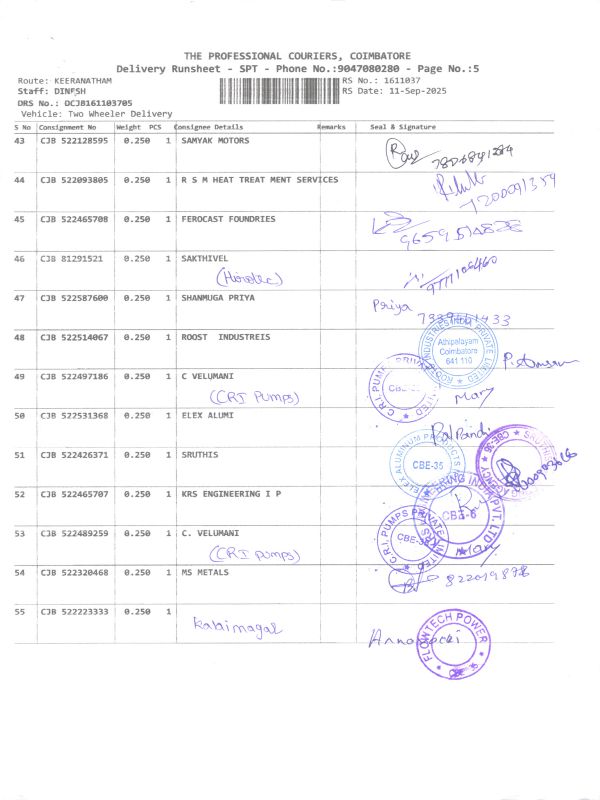 THE PROFESSIONAL COURIERS, COIMBATORE
Delivery Runsheet - SPT - Phone No.:9047080280 - Page No.:5
Route: KEERANATHAM RS No.: 1611037
Staff: DINESH RS Date: 11-Sep-2025
DRS No.: DCJB161103705
Vehicle: Two Wheeler Delivery
S No Consignment No Weight PCS Consignee Details Remarks Seal & Signature
43 CJB 522128595 0.250 1 SAMYAK MOTORS
44 CJB 522093805 0.250 1 R S M HEAT TREAT MENT SERVICES
7200091359
45 CJB 522465708 0.250 1 FEROCAST FOUNDRIES
46 CJB 81291521 0.250 1 SAKTHIVEL
47 CJB 522587600 0.250 1 SHANMUGA PRIYA
Priya
48 CJB 522514067 0.250 1 ROOST INDUSTREIS
ROOST INDUSTRIES INDIA PRIVATE LIMITED
Athipalayam
Coimbatore
641 110
49 CJB 522497186 0.250 1 C VELUMANI
(CRI Pumps)
C.R.I. PUMPS PRIVATE LIMITED
Mary
50 CJB 522531368 0.250 1 ELEX ALUMI
Pal Pandi
51 CJB 522426371 0.250 1 SRUTHIS
ELEX ALUMINUM PRODUCTS
CBE-35
SRUTHIS AGENCY
52 CJB 522465707 0.250 1 KRS ENGINEERING I P
CBE-6
53 CJB 522489259 0.250 1 C. VELUMANI
(CRI Pumps)
C.R.I. PUMPS PRIVATE LIMITED
Mary
54 CJB 522320468 0.250 1 MS METALS
55 CJB 522223333 0.250 1
Kalaimagal
FLOWTECH POWER